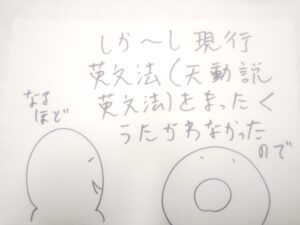 しか〜し現行
英文法(天動説
英文法)をまったく
うたがわなかった
ので
なる
ほど